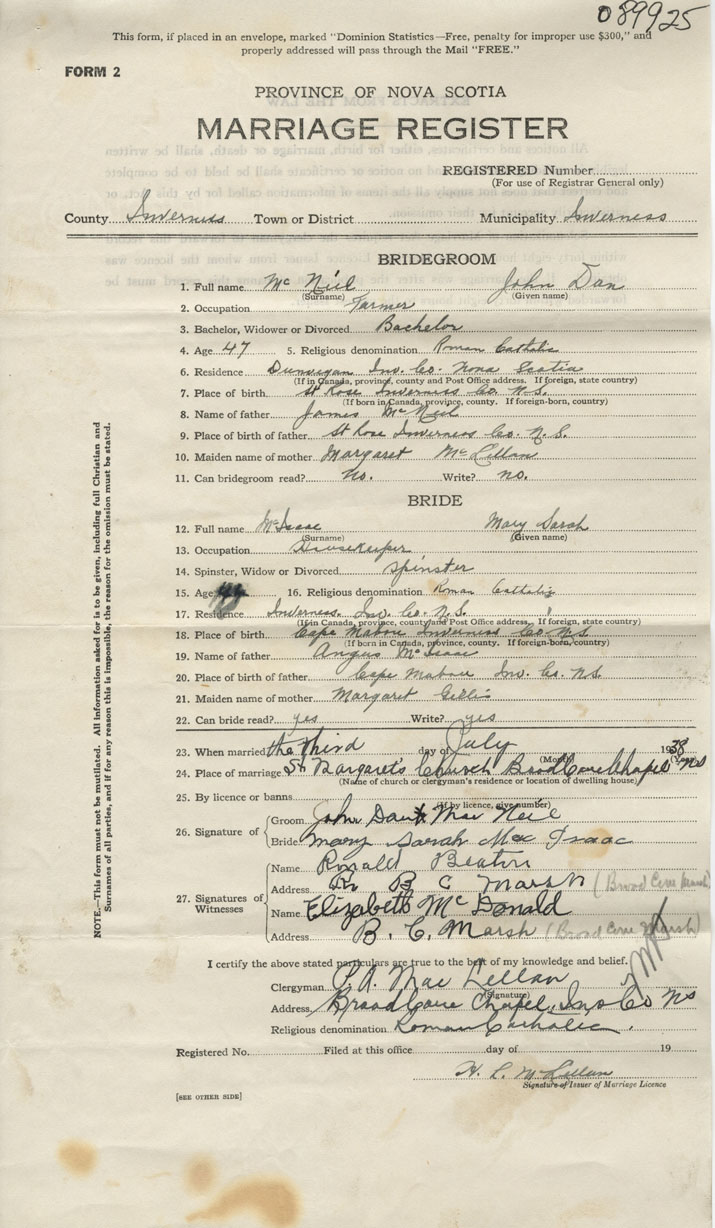 089925
This form, if placed in an envelope, marked "Dominion Statistics—Free, penalty for improper use $300," and
properly addressed will pass through the Mail "FREE."
FORM 2
PROVINCE OF NOVA SCOTIA
MARRIAGE REGISTER
REGISTERED Number
(For use of Registrar General only)
County Inverness Town or District Municipality Inverness
BRIDEGROOM
1. Full name Mc Neil John Dan
(Surname) (Given name)
2. Occupation Farmer
3. Bachelor, Widower or Divorced Bachelor
4. Age 47 5. Religious denomination Roman Catholic
6. Residence Dunvegan Inv. Co. Nova Scotia
(If in Canada, province, county and Post Office address. If foreign, state country)
7. Place of birth St Rose Inverness Co. N.S.
(If born in Canada, province, county. If foreign-born, country)
8. Name of father James McNeil
9. Place of birth of father St Rose Inverness Co. N.S.
10. Maiden name of mother Margaret McLellan
11. Can bridegroom read? no. Write? no.
BRIDE
12. Full name McIsaac Mary Sarah
(Surname) (Given name)
13. Occupation Housekeeper
14. Spinster, Widow or Divorced Spinster
15. Age 16. Religious denomination Roman Catholic
17. Residence Inverness Inv. Co. N.S.
(If in Canada, province, county and Post Office address. If foreign, state country)
18. Place of birth Cape Mabou Inverness Co. N.S.
(If born in Canada, province, county. If foreign-born, country)
19. Name of father Angus McIsaac
20. Place of birth of father Cape Mabou Inv. Co. N.S.
21. Maiden name of mother Margaret Gillis
22. Can bride read? yes Write? yes
23. When married the third day of July 1938
(Month) (Year)
24. Place of marriage St Margaret's Church Broad Cove Chapel N S
(Name of church or clergyman's residence or location of dwelling house)
25. By licence or banns
(If by licence, give number)
26. Signature of
Groom John Dan Mac Neil
Bride Mary Sarah Mac Isaac
27. Signatures of Witnesses
Name Ronald Beaton
Address B C Marsh (Broad Cove Marsh)
Name Elizabeth McDonald
Address B. C. Marsh (Broad Cove Marsh)
I certify the above stated particulars are true to the best of my knowledge and belief.
Clergyman P. A. Mac Lellan
(Signature)
Address Broad Cove Chapel, Inv Co NS
Religious denomination Roman Catholic.
Registered No. Filed at this office day of 19
H. L. McLellan
Signature of Issuer of Marriage Licence
[SEE OTHER SIDE]
NOTE.—This form must not be mutilated. All information asked for is to be given, including full Christian and
Surnames of all parties, and if for any reason this is impossible, the reason for the omission must be stated.